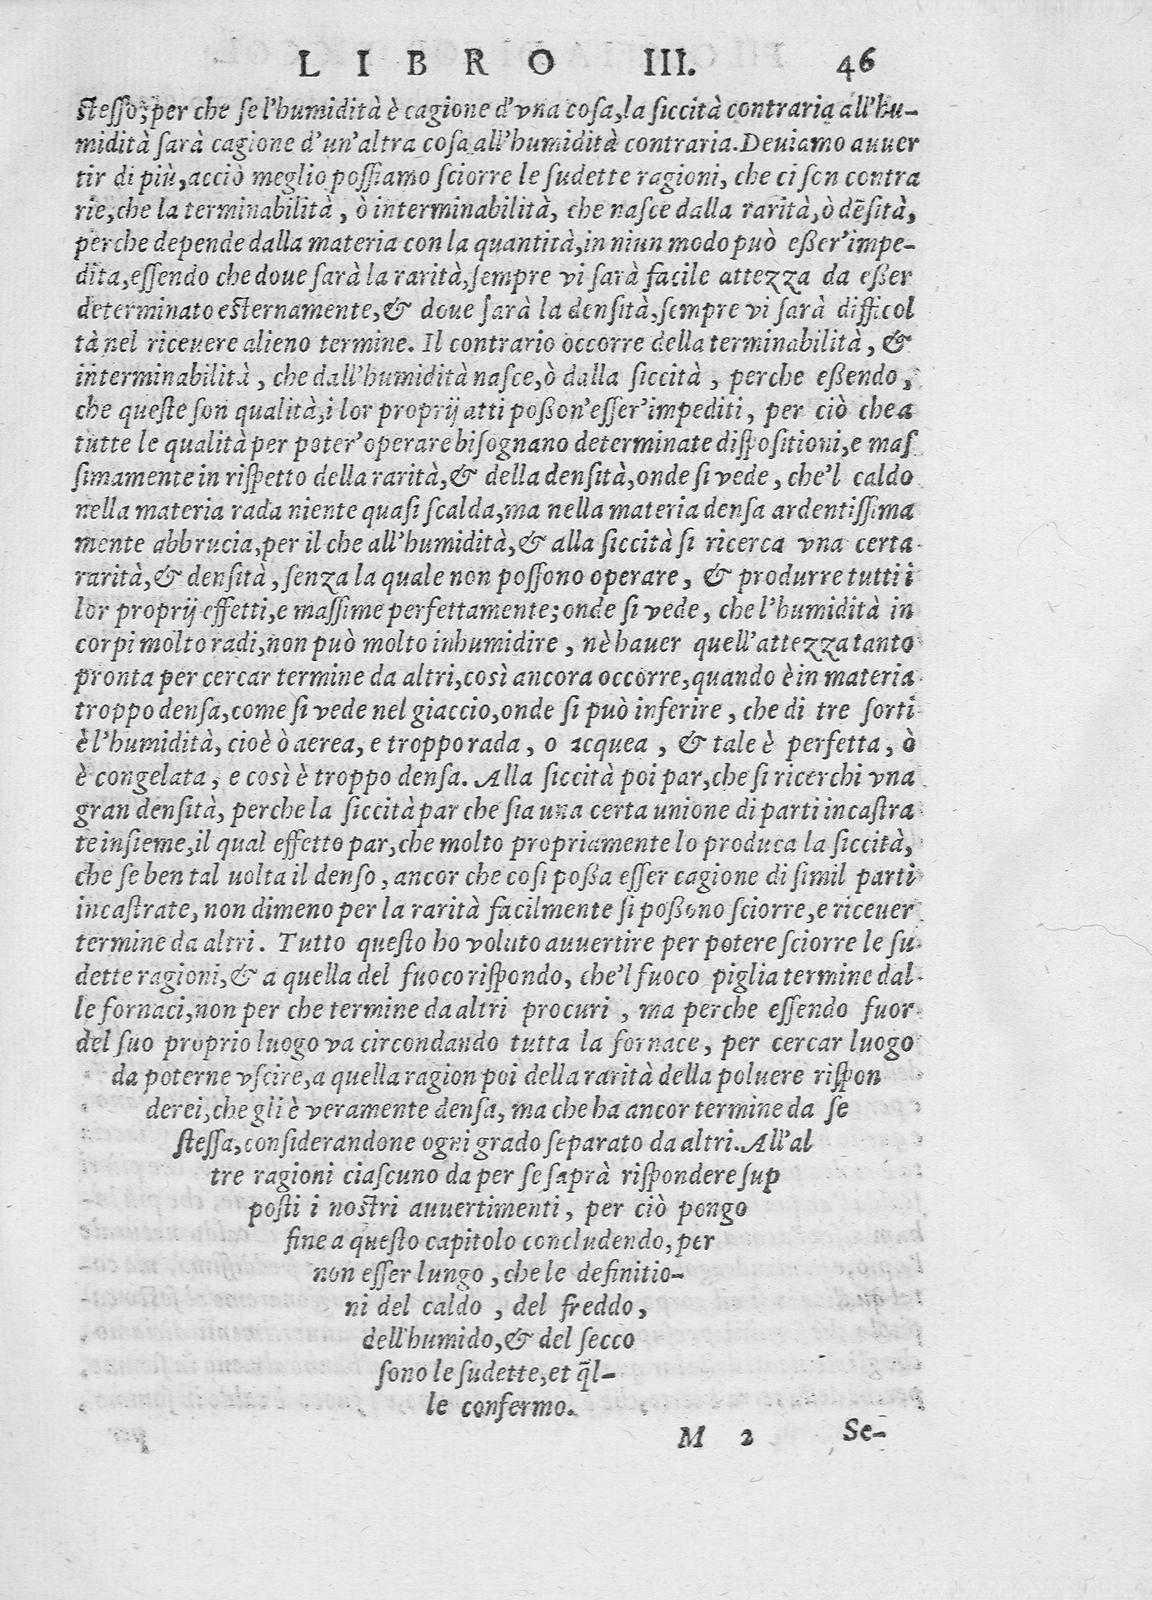 LIBRO III. 46
ſteſſo; per che ſe l'humidità è cagione d'vna coſa, la ſiccità contraria all'hu-
midità ſarà cagione d'un'altra coſa all'humidità contraria. Deuiamo auuer
tir di più, acciò meglio poſſiamo ſciorre le ſudette ragioni, che ci ſon contra
rie, che la terminabilità, ò interminabilità, che naſce dalla rarità, ò dẽſità,
perche depende dalla materia con la quantità, in niun modo può eßer'impe-
dita, eſſendo che doue ſarà la rarità, ſempre vi ſarà facile attezza da eßer
determinato eſternamente, & doue ſarà la denſità, ſempre vi ſarà difficol
tà nel riceuere alieno termine. Il contrario occorre della terminabilità, &
interminabilità, che dall'humidità naſce, ò dalla ſiccità, perche eßendo,
che queſte ſon qualità, i lor proprij atti poßon'eſſer'impediti, per ciò che a
tutte le qualità per poter'operare biſognano determinate diſpoſitioni, e maſ
ſimamente in riſpetto della rarità, & della denſità, onde ſi vede, che'l caldo
nella materia rada niente quaſi ſcalda, ma nella materia denſa ardentiſſima
mente abbrucia, per il che all'humidità, & alla ſiccità ſi ricerca vna certa
rarità, & denſità, ſenza la quale non poſſono operare, & produrre tutti i
lor proprij effetti, e maſſime perfettamente; onde ſi vede, che l'humidità in
corpi molto radi, non può molto inhumidire, nè hauer quell'attezza tanto
pronta per cercar termine da altri, così ancora occorre, quando è in materia
troppo denſa, come ſi vede nel giaccio, onde ſi può inferire, che di tre ſorti
è l'humidità, cioè ò aerea, e troppo rada, o acquea, & tale è perfetta, ò
è congelata, e così è troppo denſa. Alla ſiccità poi par, che ſi ricerchi vna
gran denſità, perche la ſiccità par che ſia una certa unione di parti incaſtra
te inſieme, il qual effetto par, che molto propriamente lo produca la ſiccità,
che ſe ben tal uolta il denſo, ancor che coſi poßa eſſer cagione di ſimil parti
incaſtrate, non dimeno per la rarità facilmente ſi poßono ſciorre, e riceuer
termine da altri. Tutto queſto ho voluto auuertire per potere ſciorre le ſu
dette ragioni, & a quella del fuoco riſpondo, che'l fuoco piglia termine dal-
le fornaci, non per che termine da altri procuri, ma perche eſſendo fuor
del ſuo proprio luogo va circondando tutta la fornace, per cercar luogo
da poterne vſcire, a quella ragion poi della rarità della poluere riſpon
derei, che gli è veramente denſa, ma che ha ancor termine da ſe
ſteſſa, conſiderandone ogni grado ſeparato da altri. All'al
tre ragioni ciaſcuno da per ſe ſaprà riſpondere ſup
poſti i noſtri auuertimenti, per ciò pongo
fine a queſto capitolo concludendo, per
non eſſer lungo, che le definitio-
ni del caldo, del freddo,
dell'humido, & del ſecco
ſono le ſudette, et q̃l-
le confermo.
M 2 Se-